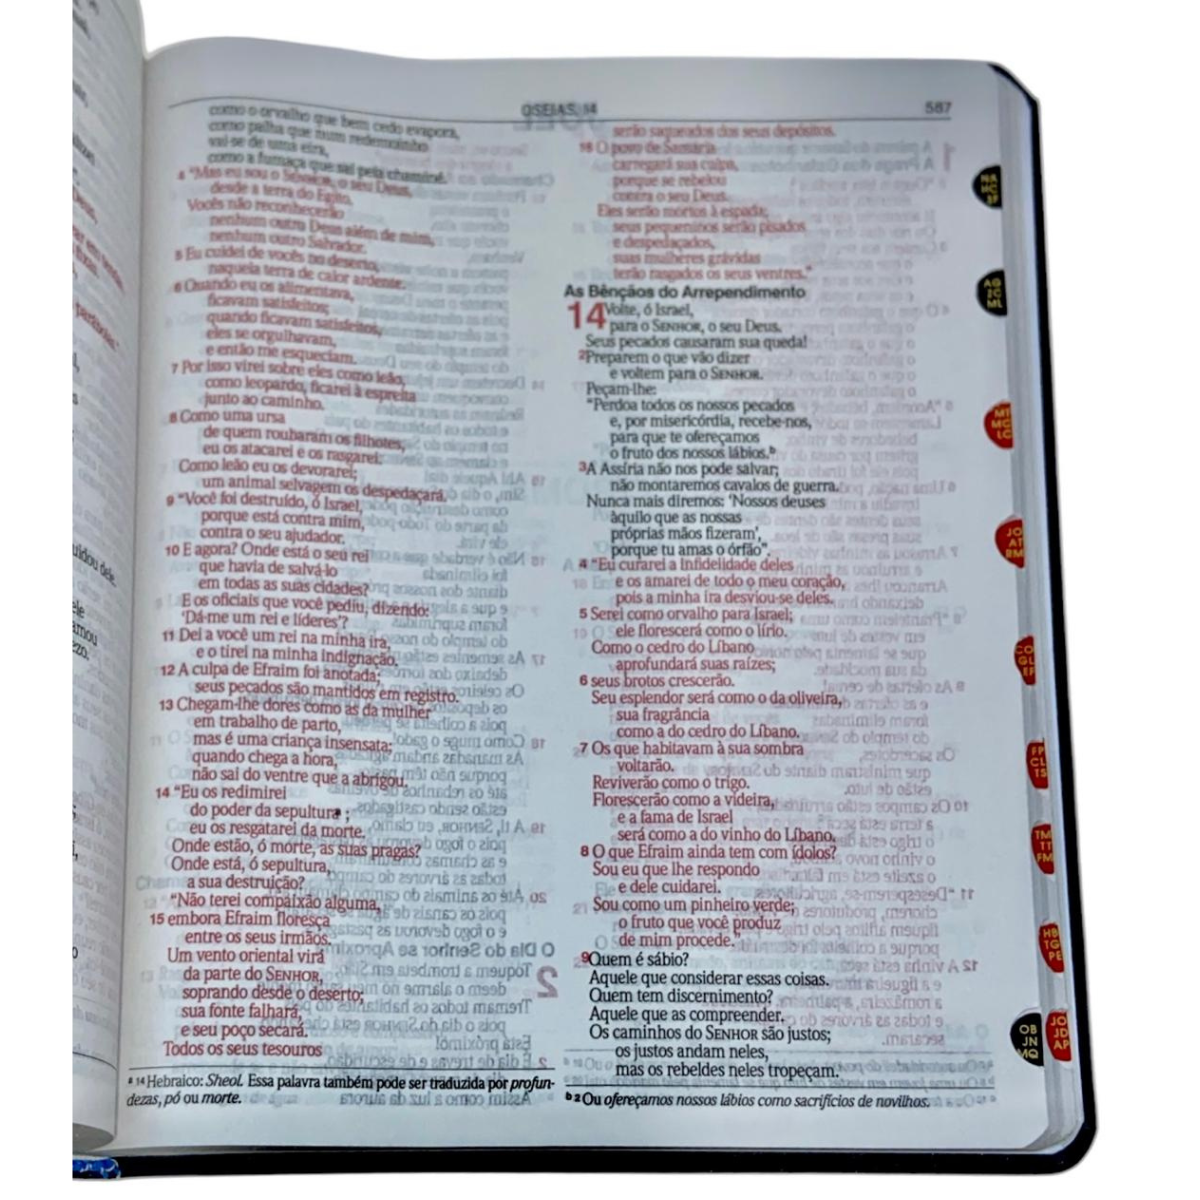 OSEIAS, 14
567
como o orvalho que bem cedo evapora,
como palha que num redemoinho
vai-se de uma eira,
como a fumaça que sai pela chaminé.
4 "Mas eu sou o SENHOR, o seu Deus,
desde a terra do Egito.
Vocês não reconhecerão
nenhum outro Deus além de mim,
nenhum outro Salvador.
5 Eu cuidei de vocês no deserto,
naquela terra de calor ardente.
6 Quando eu os alimentava,
ficavam satisfeitos;
quando ficavam satisfeitos,
eles se orgulhavam,
e então me esqueciam.
7 Por isso virei sobre eles como leão,
como leopardo, ficarei à espreita
junto ao caminho.
8 Como uma ursa
de quem roubaram os filhotes,
eu os atacarei e os rasgarei.
Como leão eu os devorarei;
um animal selvagem os despedaçará.
9 "Você foi destruído, ó Israel,
porque está contra mim,
contra o seu ajudador.
10 E agora? Onde está o seu rei
que havia de salvá-lo
em todas as suas cidades?
E os oficiais que você pediu, dizendo:
'Dá-me um rei e líderes'?
11 Dei a você um rei na minha ira,
e o tirei na minha indignação.
12 A culpa de Efraim foi anotada;
seus pecados são mantidos em registro.
13 Chegam-lhe dores como as da mulher
em trabalho de parto,
mas é uma criança insensata;
quando chega a hora,
não sai do ventre que a abrigou.
14 "Eu os redimirei
do poder da sepultura a;
eu os resgatarei da morte.
Onde estão, ó morte, as suas pragas?
Onde está, ó sepultura,
a sua destruição?
"Não terei compaixão alguma,
15 embora Efraim floresça
entre os seus irmãos.
Um vento oriental virá
da parte do SENHOR,
soprando desde o deserto;
sua fonte falhará,
e seu poço secará.
Todos os seus tesouros
a 14 Hebraico: Sheol. Essa palavra também pode ser traduzida por profun-
dezas, pó ou morte.
serão saqueados dos seus depósitos.
16 O povo de Samaria
carregará sua culpa,
porque se rebelou
contra o seu Deus.
Eles serão mortos à espada;
seus pequeninos serão pisados
e despedaçados,
suas mulheres grávidas
terão rasgados os seus ventres."
As Bênçãos do Arrependimento
14 Volte, ó Israel,
para o SENHOR, o seu Deus.
Seus pecados causaram sua queda!
2 Preparem o que vão dizer
e voltem para o SENHOR.
Peçam-lhe:
"Perdoa todos os nossos pecados
e, por misericórdia, recebe-nos,
para que te ofereçamos
o fruto dos nossos lábios.b
3 A Assíria não nos pode salvar;
não montaremos cavalos de guerra.
Nunca mais diremos: 'Nossos deuses
àquilo que as nossas
próprias mãos fizeram',
porque tu amas o órfão".
4 "Eu curarei a infidelidade deles
e os amarei de todo o meu coração,
pois a minha ira desviou-se deles.
5 Serei como orvalho para Israel;
ele florescerá como o lírio.
Como o cedro do Líbano
aprofundará suas raízes;
6 seus brotos crescerão.
Seu esplendor será como o da oliveira,
sua fragrância
como a do cedro do Líbano.
7 Os que habitavam à sua sombra
voltarão.
Reviverão como o trigo.
Florescerão como a videira,
e a fama de Israel
será como a do vinho do Líbano.
8 O que Efraim ainda tem com ídolos?
Sou eu que lhe respondo
e dele cuidarei.
Sou como um pinheiro verde;
o fruto que você produz
de mim procede."
9 Quem é sábio?
Aquele que considerar essas coisas.
Quem tem discernimento?
Aquele que as compreender.
Os caminhos do SENHOR são justos;
os justos andam neles,
mas os rebeldes neles tropeçam.
b 2 Ou ofereçamos nossos lábios como sacrifícios de novilhos.
NA
HC
SF
AG
ZC
ML
MT
MC
LC
JO
AT
RM
CO
GL
EF
FP
CL
TS
TM
TT
FM
HB
TG
PE
OB
JN
MQ
JO
JD
AP